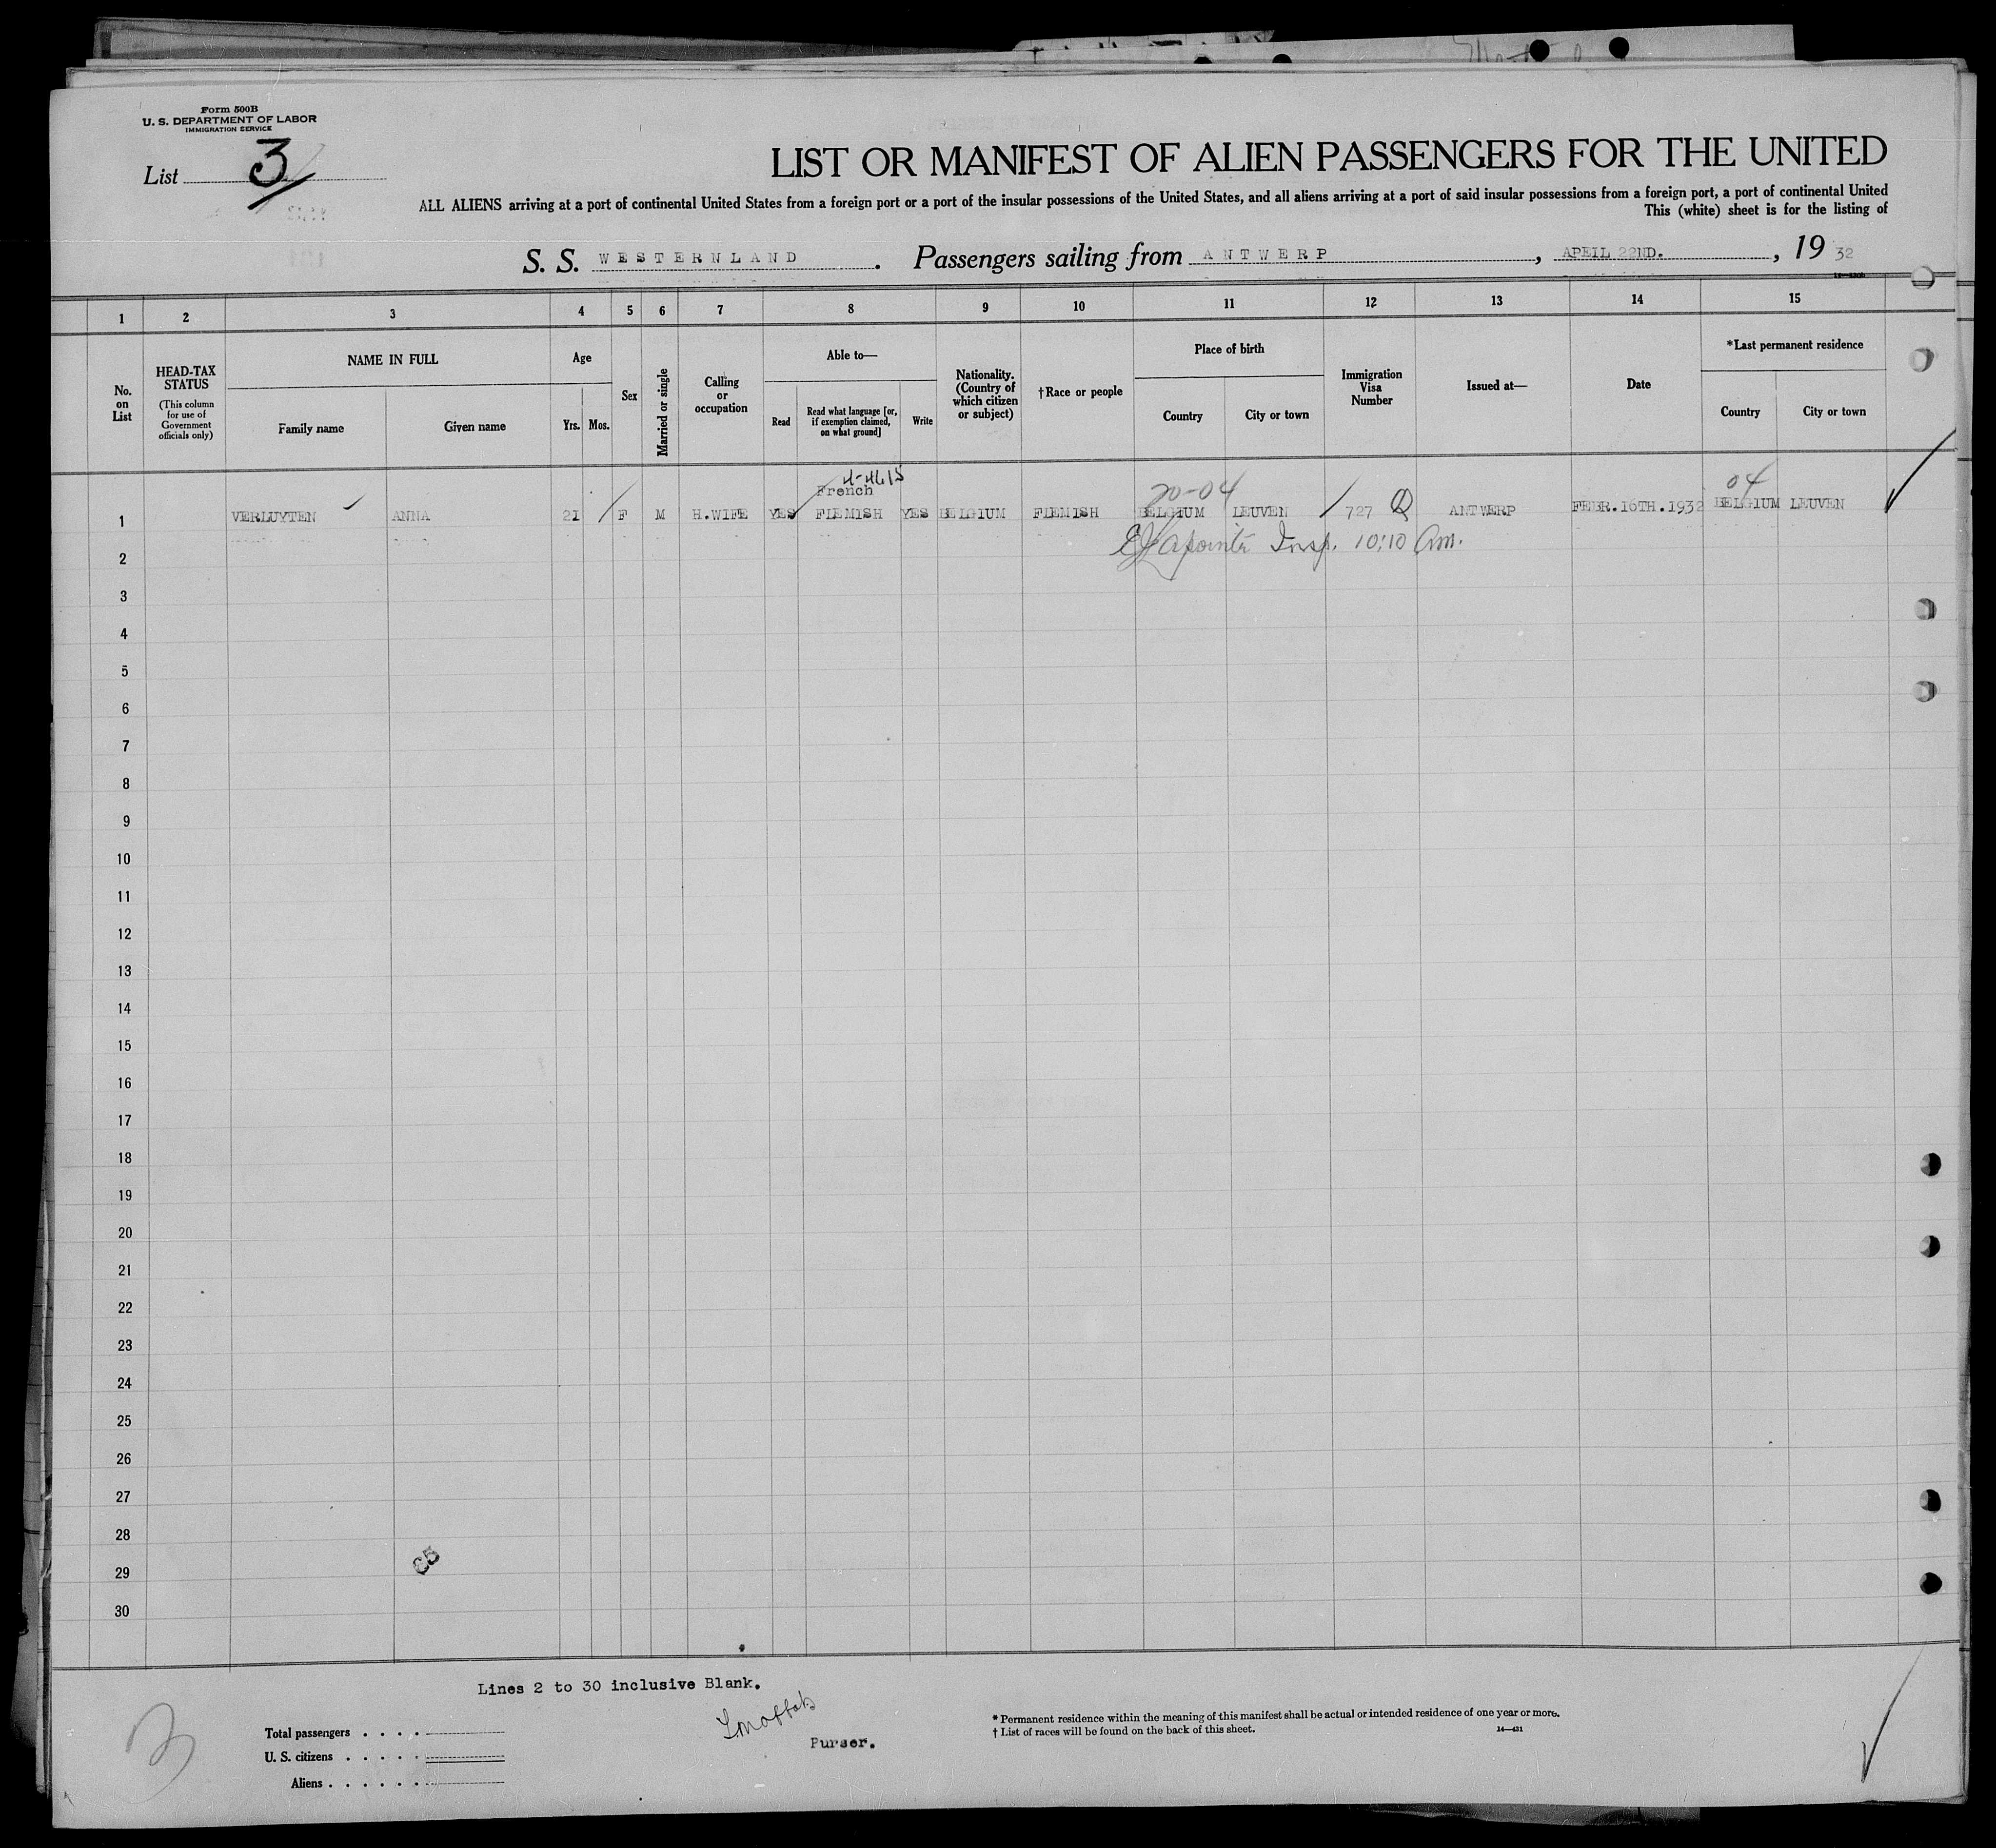 Form 500B
U. S. DEPARTMENT OF LABOR
IMMIGRATION SERVICE
List 3
LIST OR MANIFEST OF ALIEN PASSENGERS FOR THE UNITED
ALL ALIENS arriving at a port of continental United States from a foreign port or a port of the insular possessions of the United States, and all aliens arriving at a port of said insular possessions from a foreign port, a port of continental United
This (white) sheet is for the listing of
S. S. WESTERNLAND. Passengers sailing from ANTWERP, APRIL 22ND., 1932
1 2 3 4 5 6 7 8 9 10 11 12 13 14 15
No. on List
HEAD-TAX STATUS
(This column for use of Government officials only)
NAME IN FULL
Family name Given name
Age
Yrs. Mos.
Sex
Married or single
Calling or occupation
Able to—
Read Read what language [or, if exemption claimed, on what ground] Write
Nationality. (Country of which citizen or subject)
†Race or people
Place of birth
Country City or town
Immigration Visa Number
Issued at—
Date
*Last permanent residence
Country City or town
French 20-04 04
1 VERLUYTEN ANNA 21 F M H.WIFE YES FLEMISH YES BELGIUM FLEMISH BELGIUM LEUVEN 727 Q ANTWERP FEBR.16TH.1932 BELGIUM LEUVEN
Lapointe Insp. 10:10 Am.
2
3
4
5
6
7
8
9
10
11
12
13
14
15
16
17
18
19
20
21
22
23
24
25
26
27
28
29
30
Lines 2 to 30 inclusive Blank.
3
Total passengers . . . .
U. S. citizens . . . . .
Aliens . . . . . .
Purser.
* Permanent residence within the meaning of this manifest shall be actual or intended residence of one year or more.
† List of races will be found on the back of this sheet.
14—431